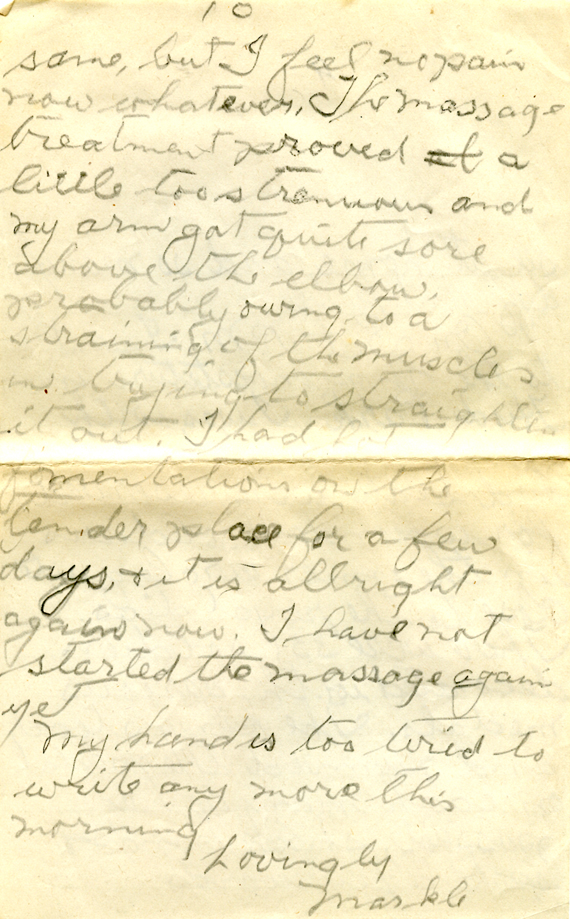 10
same, but I feel no pain
now whatever. The massage
treatment proved a
little too strenuous and
my arm got quite sore
above the elbow,
probably owing to a
straining of the muscles
in trying to straighten
it out. I had hot
fomentations on the
tender place for a few
days, & it is allright
again now. I have not
started the massage again
yet
My hand is too tired to
write any more this
morning
Lovingly
Markle